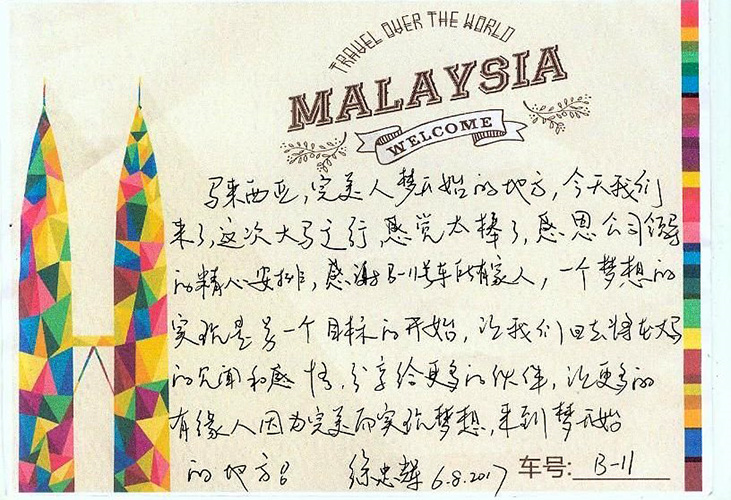 TRAVEL OVER THE WORLD
MALAYSIA
WELCOME
马来西亚,完美人梦开始的地方,今天我们
来了,这次大马之行,感觉太棒了,感恩公司领导
的精心安排,感谢B-11号车所有家人,一个梦想的
实现是另一个目标的开始,让我们回去将大马
的见闻和感悟,分享给更多的伙伴,让更多的
有缘人因为完美而实现梦想,来到梦开始
的地方。
徐忠辉 6.8.2017 车号: B-11